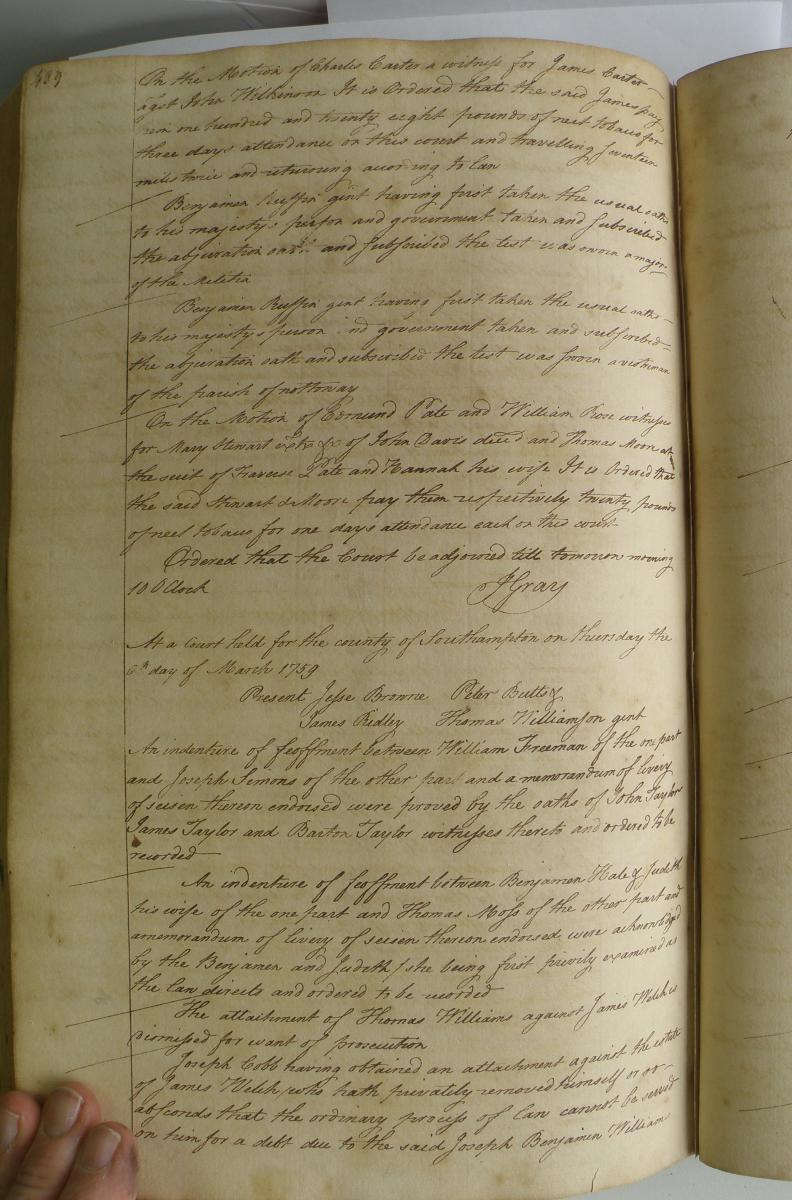 489
On the Motion of Charles Carter a witness for James Carter
agst John Wilkinson It is Ordered that the said James pay
him one hundred and twenty eight pounds of neet tobacco for
three days attendance on this court and travelling seventeen
miles twice and returning according to Law
Benjamen Ruffin gent having first taken the usual oaths
to his majesty's person and government taken and subscribed
the abjuration oath and subscribed the test was sworn a major
of the Melitia
Benjamen Ruffin gent having first taken the usual oaths
to his majesty's person and government taken and subscribed
the abjuration oath and subscribed the test was sworn a vestriman
of the parish of nottoway
On the Motion of Edmund Pate and William Rose witnesses
for Mary Stewart extx &c of John Davis decd and Thomas Moore at
the suit of Traverse Pate and Hannah his wife It is Ordered that
the said Stewart & Moore pay them respectively twenty pounds
of neet tobacco for one days attendance each on this court
Ordered that the Court be adjourned till tomorrow morning
10 OClock
J Gray
At a Court held for the county of Southampton on thursday the
day of March 1759
Present Jesse Browne Peter Butts &
James Ridley Thomas Williamson gent
An indenture of feoffment between William Freeman of the one part
and Joseph Simons of the other part and a memorandum of livery
of seisen thereon endorsed were proved by the oaths of John Taylor
James Taylor and Barton Taylor witnesses thereto and ordered to be
recorded
An indenture of feoffment between Benjamen Hale & Judith
his wife of the one part and Thomas Moss of the other part and
a memorandum of livery of seisen thereon endorsed were acknowledged
by the Benjamen and Judith / she being first privily examined as
the Law directs and ordered to be recorded
The attachment of Thomas Williams against James Welch is
Dismissed for want of prosecution
Joseph Cobb having obtained an attachment against the estate
of James Welch, who hath privately removed himself or or
absconds that the ordinary process of Law cannot be served
on him for a debt due to the said Joseph Benjamen William